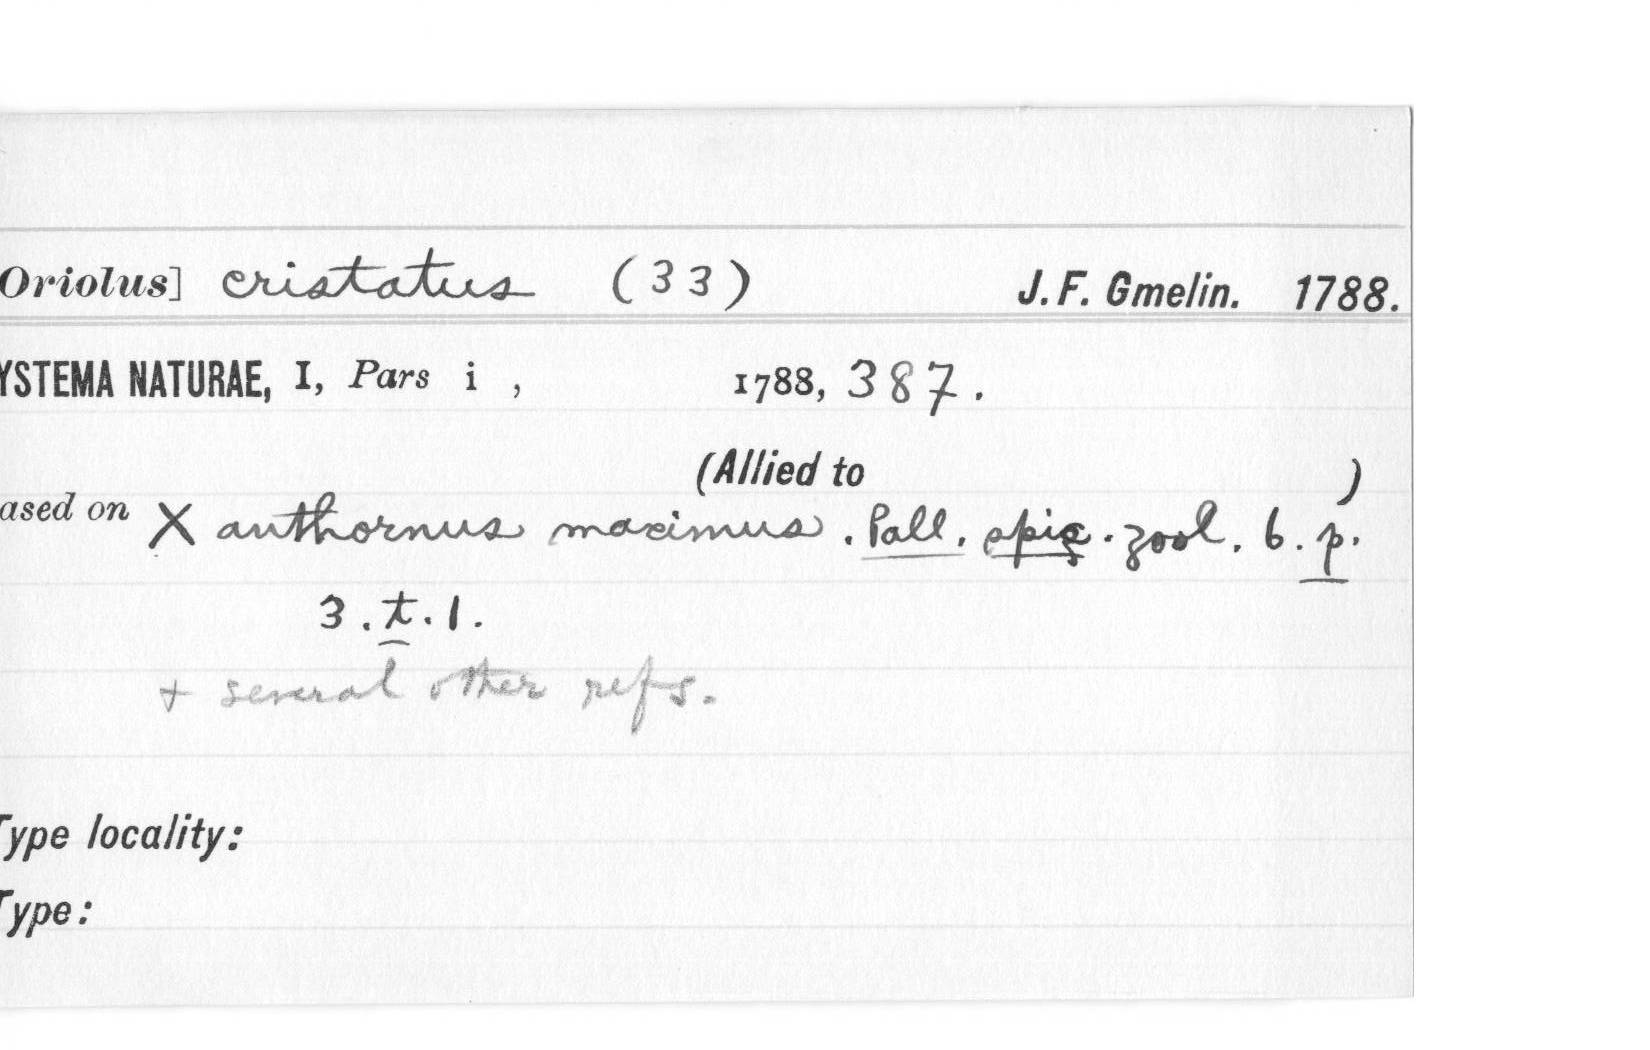 Oriolus] cristatus (33) J. F. Gmelin. 1788.
YSTEMA NATURAE, I, Pars i , 1788, 387.
(Allied to )
ased on Xanthornus maximus. Pall. spig. zool. 6. p.
3. t. 1.
+ several other refs.
Type locality:
Type: